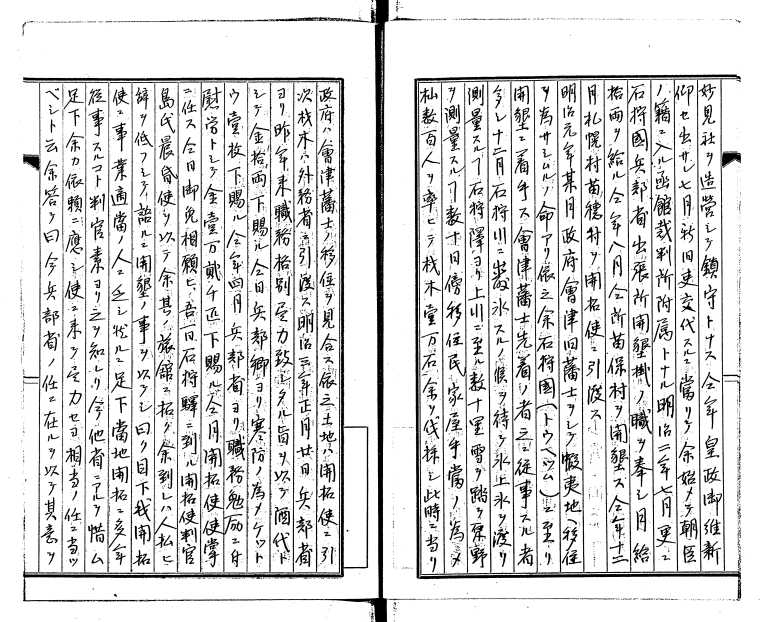 妙見社ヲ造営シテ鎮守トナス仝年皇政御維新
仰セ出サレ七月新旧吏交代スルニ當リテ余始メテ朝臣
ノ籍ニ入ル函館裁判所附属トナル明治二年七月更ニ
石狩國兵部省出張所開墾掛ノ職ヲ奉シ月給
拾両ヲ給ル仝年八月仝所苗保村ヲ開墾ス仝年十二
月札幌村苗穂村ヲ開拓使ニ引渡ス
明治元年某月政府會津旧藩士ヲシテ蝦夷地ヘ移住
ヲ為サシムルノ命アリ依之余石狩國(トウベツ)ニ至リ
開墾ニ着手ス會津藩士先着ノ者之ニ従事スル者
多シ十二月石狩川ニ氷スルノ候ヲ待テ氷上ヲ渡リ
測量スルヿ石狩驛ヨリ上川ニ至ル数十里雪ヲ踏テ原野
ヲ測量スルヿ数十日傍移住民ノ家屋手當ノ為メ
杣数百人ヲ率ヒテ材木壹万石余ヲ伐採シ此時ニ当リ
政府ハ會津藩士ノ移住ヲ見合ス依之土地ハ開拓使ニ引
次材木ハ外務省ニ引渡ス明治三年正月廿日兵部省
ヨリ昨年来職務格別尽力致シタル旨ヲ以テ酒代ト
シテ金拾両下賜ル仝日兵部卿ヨリ寒防ノ為メケット
ウ壹枚下賜ル仝年四月兵部省ヨリ職務勉励ニ付
慰労トシテ金壹万貳千匹下賜ル仝月開拓使使掌
ニ任ス仝日御免相願ヒ吾一日石狩驛ニ到ル開拓使判官
島氏晨昏使ヲ以テ余其ノ旅館ニ招ク余到レハ人払ヒ
辞ヲ低フシテ語ルニ開墾ノ事ヲ以テシ曰ク目下我開拓
使ニ事業適當ノ人ニ乏シ然ルニ足下當地開拓ニ多年
従事スルコト判官素ヨリ之ヲ知レリ今他省ニアルヲ惜ム
足下余カ依頼ニ應シ使ニ来テ尽力セヨ相当ノ任ニ当ツ
ベシト云余答テ曰今兵部省ノ任ニ在ルヲ以テ其意ヲ